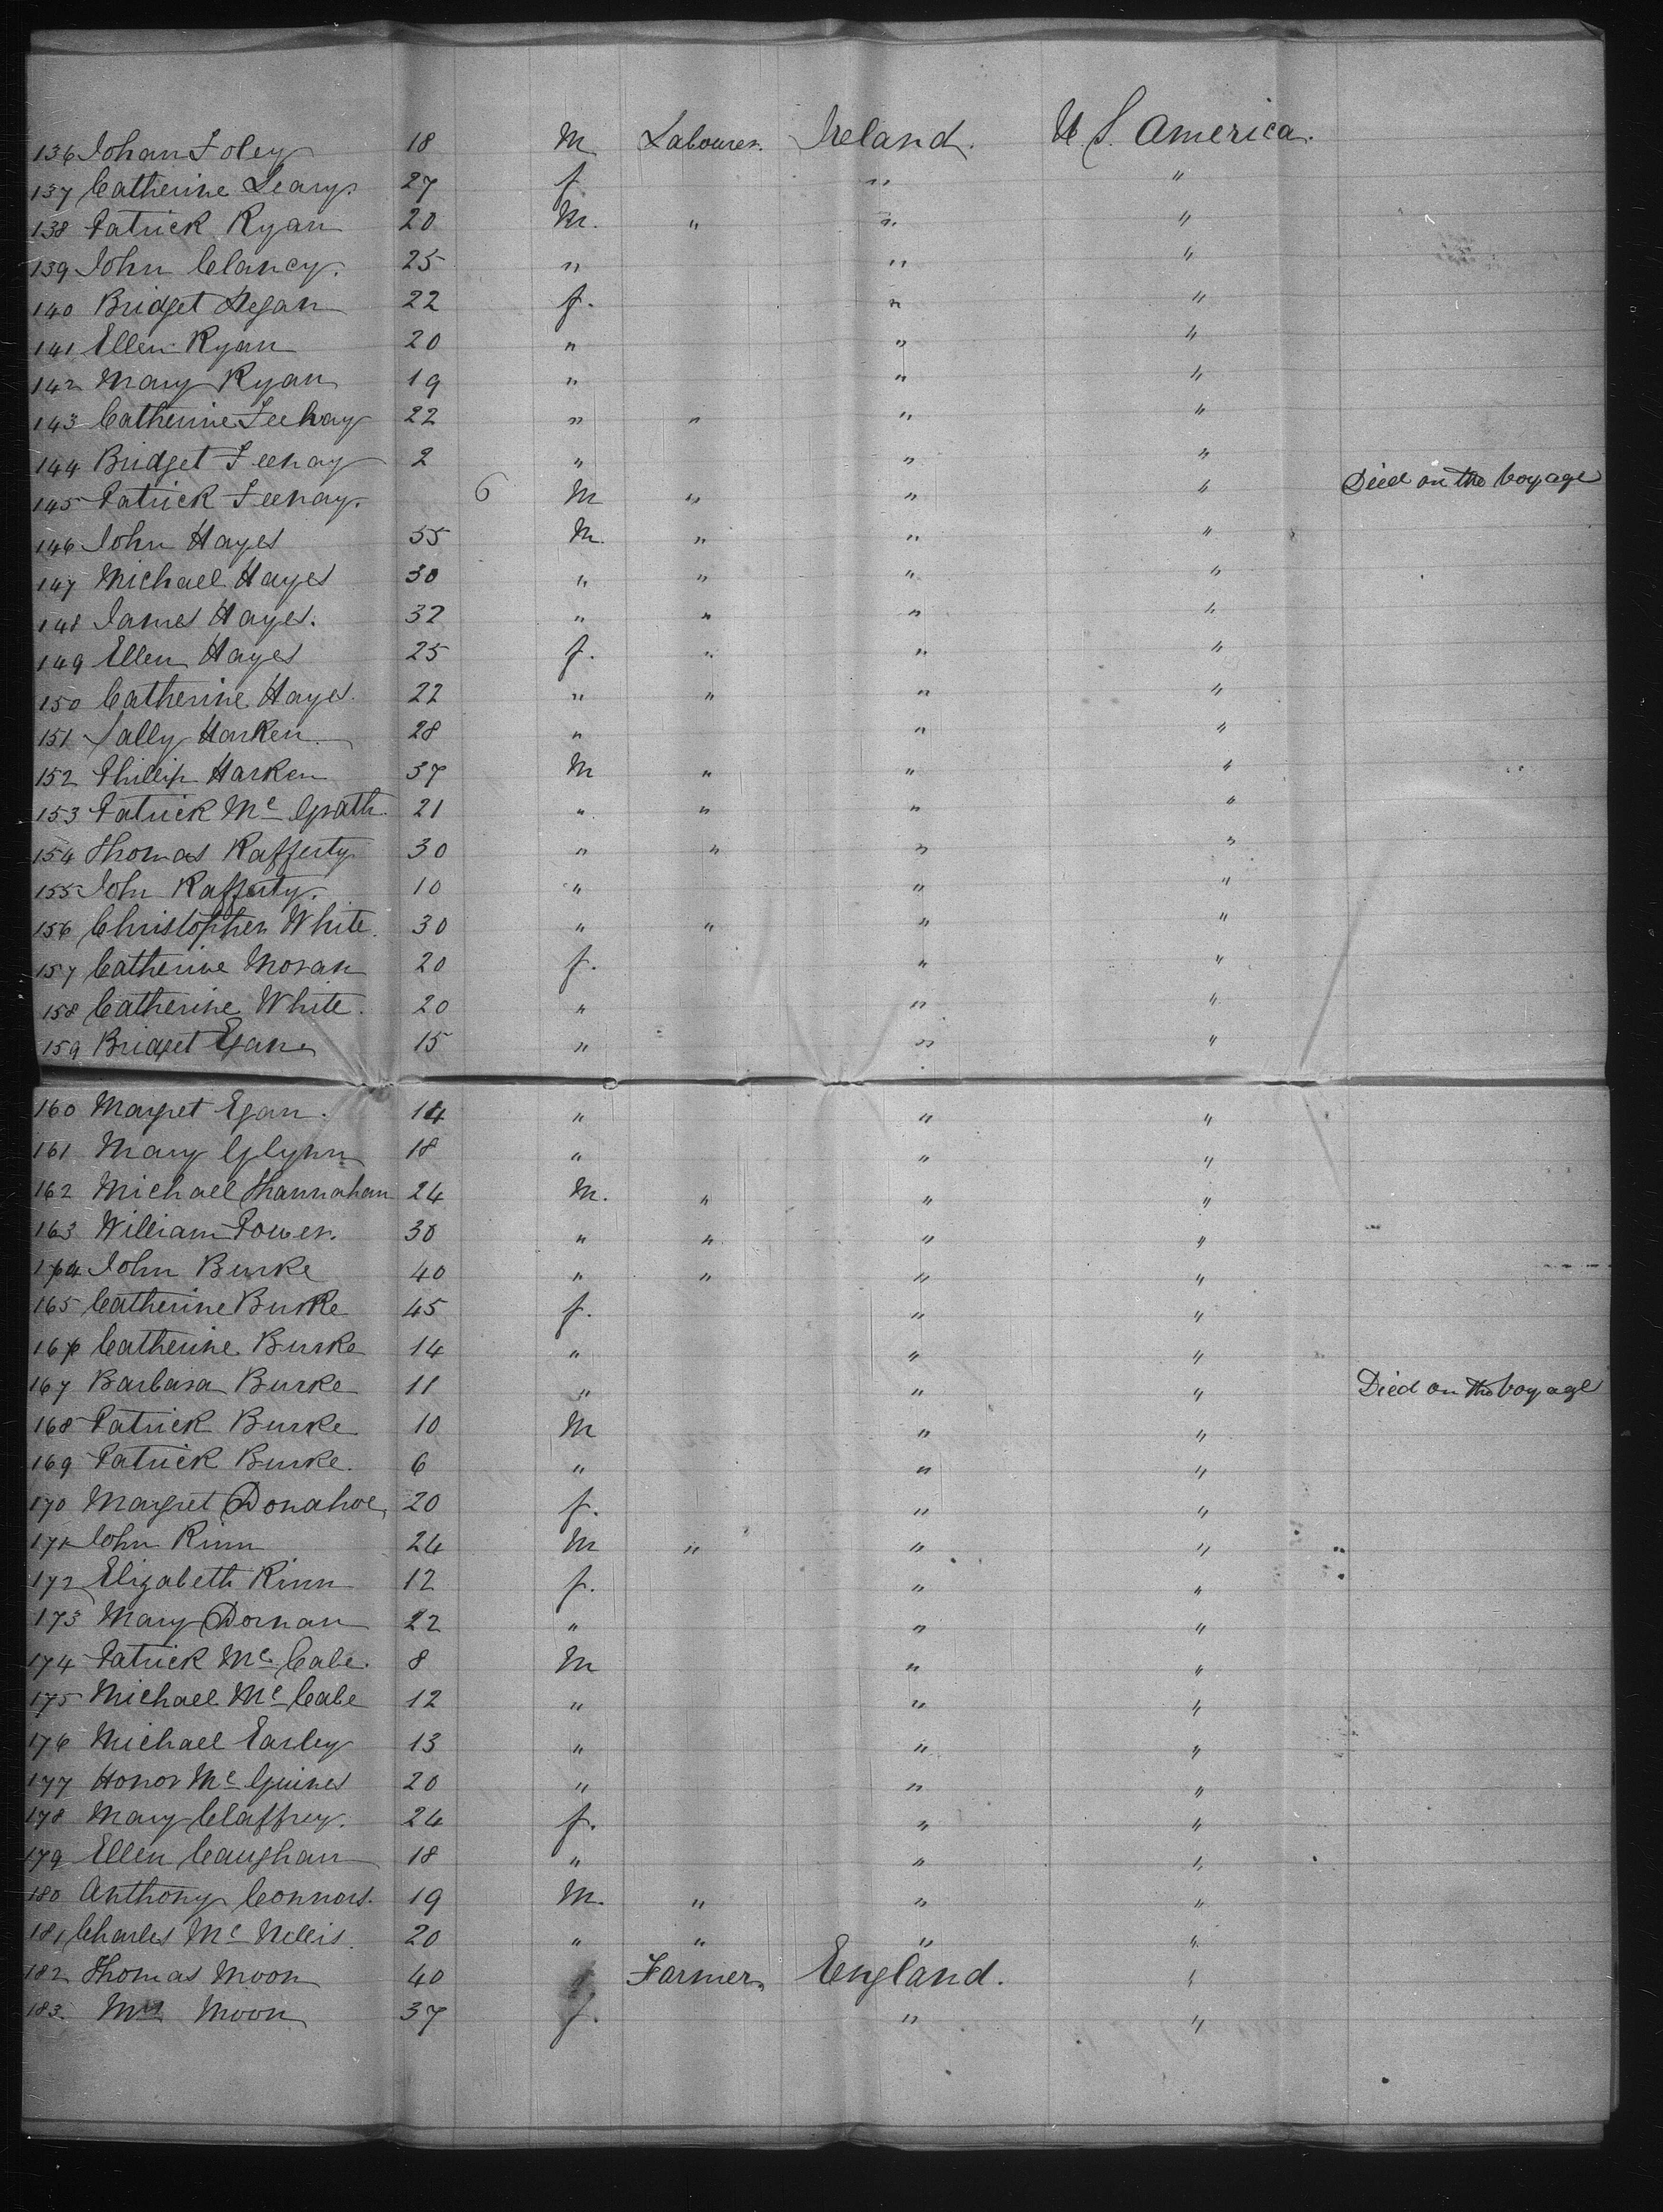 136 Johan Foley 18 M Labourer. Ireland. U. S. America.
137 Catherine Leary. 27 f " "
138 Patrick Ryan 20 M. " " "
139 John Clancy. 25 " " "
140 Bridget Hegan 22 f. " "
141 Ellen Ryan 20 " " "
142 Mary Ryan 19 " " "
143 Catherine Feehay 22 " " " "
144 Bridget Feenay 2 " " "
145 Patrick Feenay. 6 M " " " Died on the Voyage
146 John Hayes 55 M. " " "
147 Michael Hayes 30 " " " "
148 James Hayes. 32 " " " "
149 Ellen Hayes 25 f. " " "
150 Catherine Hayes. 22 " " " "
151 Sally Harken 28 " " "
152 Phillip Harken 37 M " " "
153 Patrick Mc Grath 21 " " " "
154 Thomas Rafferty 30 " " " "
155 John Rafferty. 10 " " "
156 Christopher White. 30 " " " "
157 Catherine Moran 20 f. " "
158 Catherine White. 20 " " "
159 Bridget Egan 15 " " "
160 Margret Egan. 14 " " "
161 Mary Glynn 18 " " "
162 Michael Hannahan 24 M. " " "
163 William Power. 30 " " " "
164 John Burke 40 " " " "
165 Catherine Burke 45 f. " "
166 Catherine Burke 14 " " "
167 Barbara Burke 11 " " " Died on the Voyage
168 Patrick Burke 10 M " "
169 Patrick Burke. 6 " " "
170 Margret Donahoe 20 f. " "
171 John Rinn 24 M " " "
172 Elizabeth Rinn 12 f. " "
173 Mary Dornan 22 " " "
174 Patrick Mc Cabe. 8 M " "
175 Michael Mc Cabe 12 " " "
176 Michael Earley 13 " " "
177 Honor Mc Guines 20 " " "
178 Mary Claffrey. 24 f. " "
179 Ellen Caughan 18 " " "
180 Anthony Connors. 19 M. " " "
181 Charles Mc Nelis. 20 " " " "
182 Thomas Moon 40 Farmer. England. "
183. Mrs Moon 37 f. " "